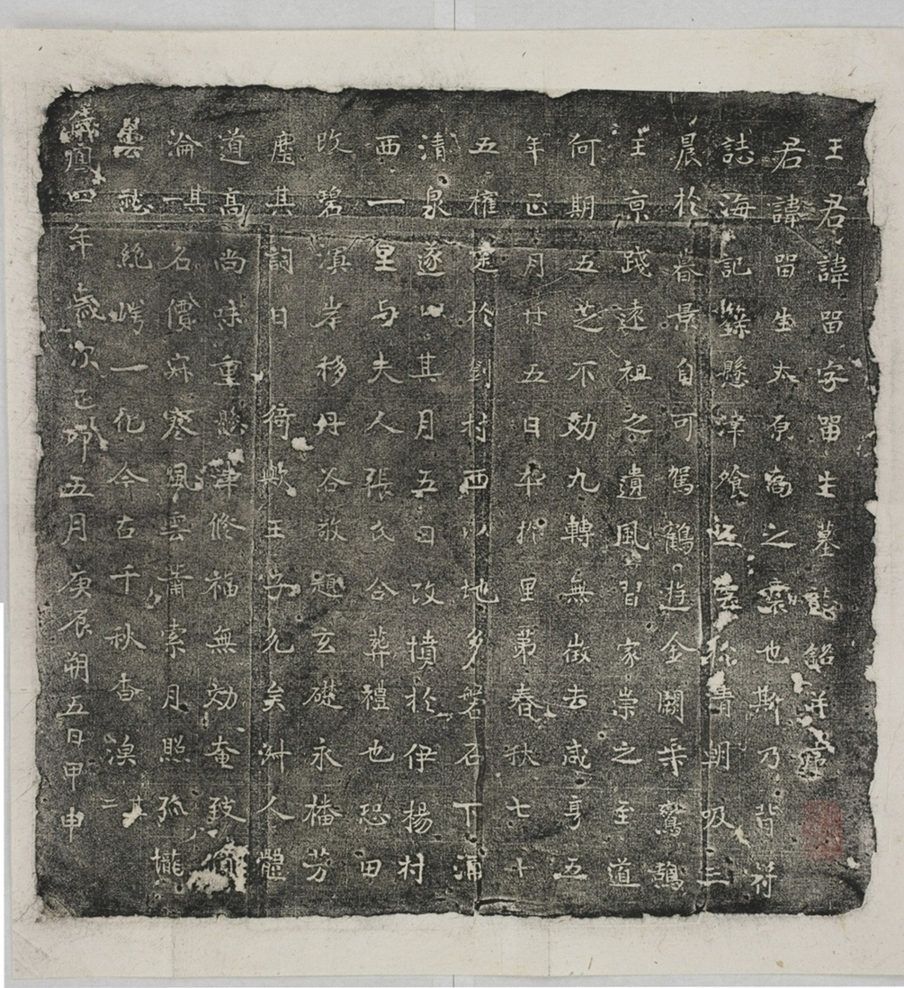 王君諱留字留生墓誌銘并序
君諱留生太原高之裔也斯乃背符
誌海記籙懸津飡 雲 青朝吸三
晨於暮景自可駕鶴遊金闕乘鸞鵠
王京踐遠祖之遺風習家崇之至道
何期五芝不効九轉無徵去咸亨五
年正月廿五日卒於里第春秋七十
五權 於劉村西以地多磐石下涌
清泉遂以其月五日改墳於伊楊村
西一里与夫人張氏合葬禮也恐田
改碧溟岸移丹谷敬題玄礎永播芳
塵其詞曰 猗歟王字允矣 人體
道高尚味重 津俻福無効奄致
淪其一名價寂寥風雲蕭索月照孤壠
雲愁絶崿一化今古千秋杳漠其二
儀鳳四年歲次己卯五月庚辰朔五日甲申